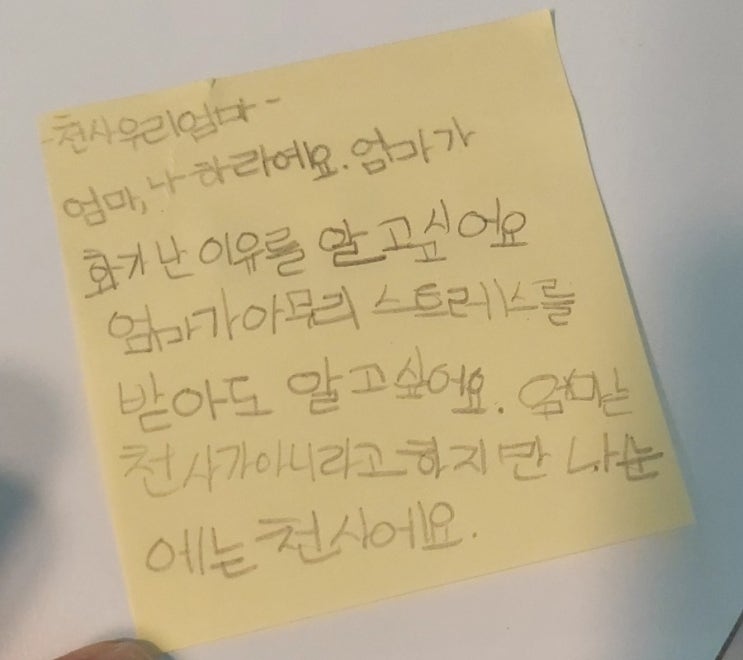 -천사우리엄마-
엄마, 나 하라에요. 엄마가
화가 난 이유를 알고싶어요
엄마가아무리 스트레스를
받아도 알고싶어요. 엄마는
천사가아니라고하지만 나눈
에는천사에요.